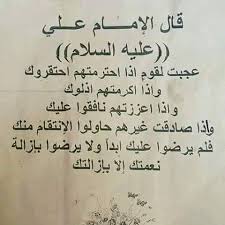 قال الإمام علي
((عليه السلام))
عجبت لقوم اذا احترمتهم احتقروك
واذا اكرمتهم اذلوك
واذا اعززتهم نافقوا عليك
وإذا صادقت غيرهم حاولوا الانتقام منك
فلم يرضوا عليك ابدأ ولا يرضوا بإزالة
نعمتك إلا بإزالتك